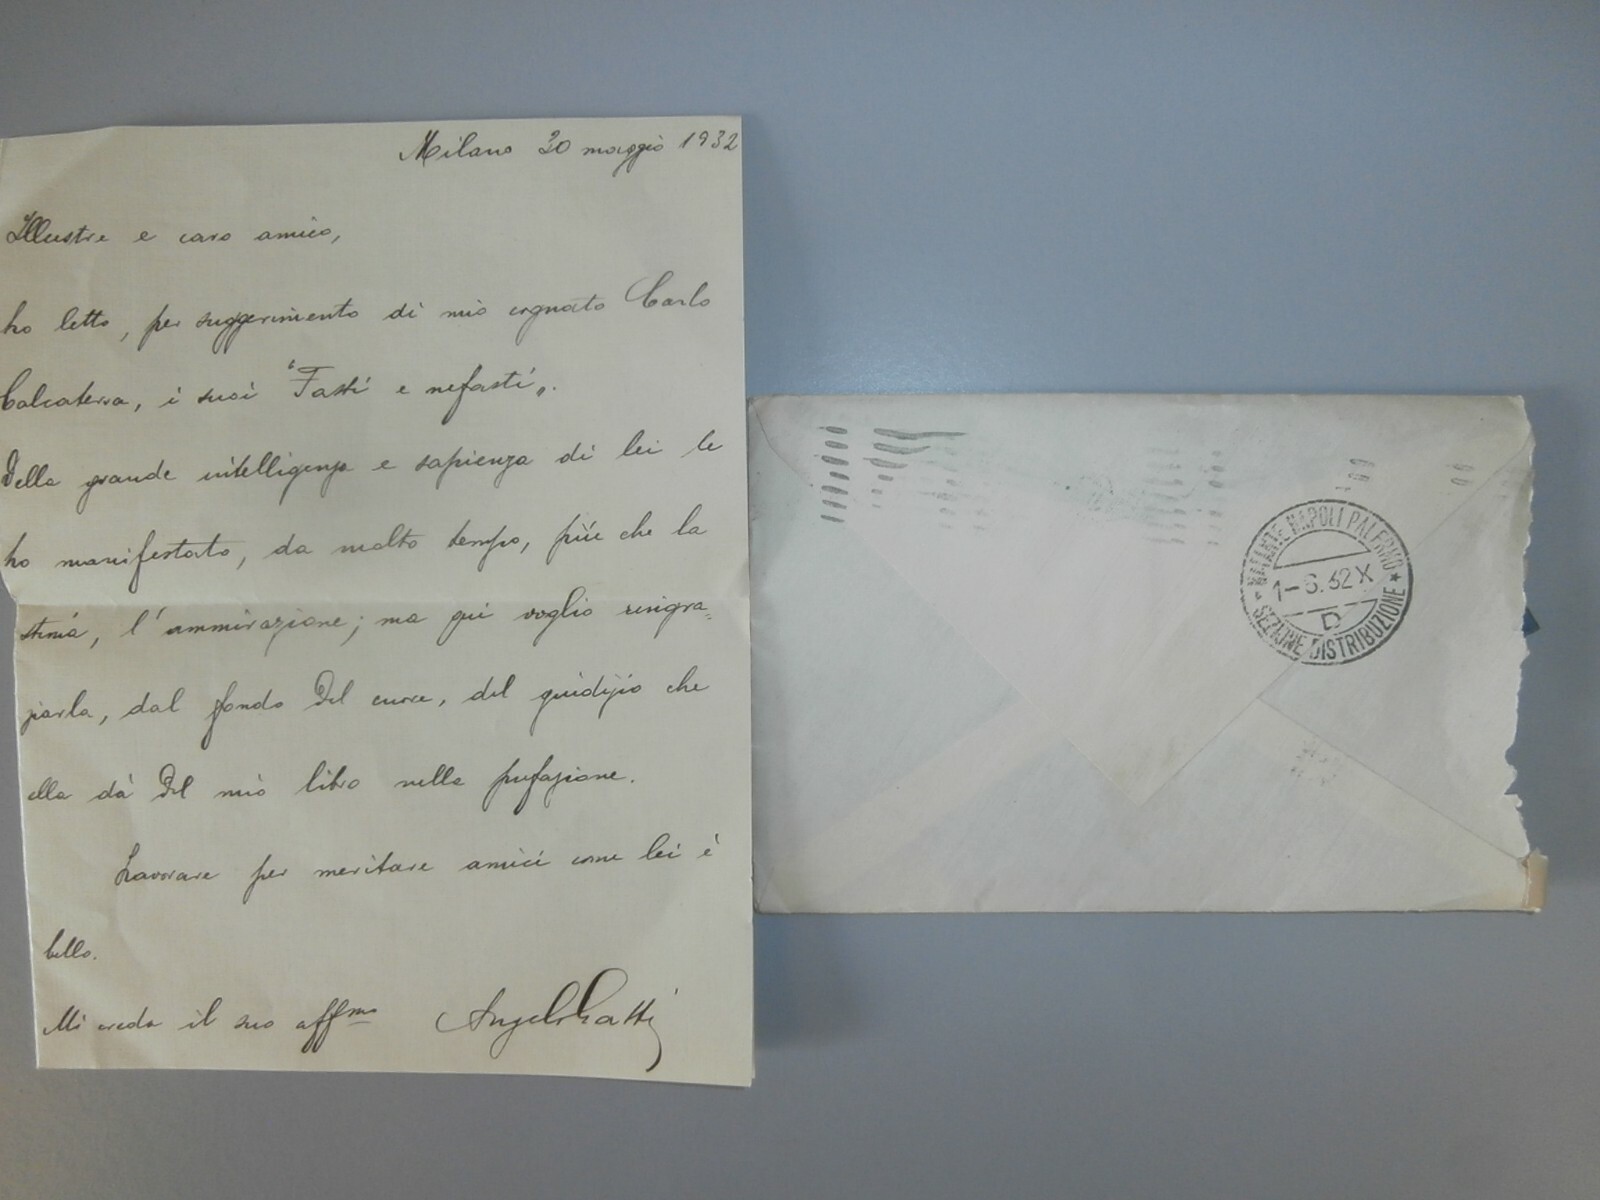 Milano 30 maggio 1932
Illustre e caro amico,
ho letto, per suggerimento di mio cognato Carlo
Calcaterra, i suoi "Fasti e nefasti„.
Della grande intelligenza e sapienza di lei le
ho manifestato, da molto tempo, più che la
stima, l'ammirazione; ma qui voglio ringra=
ziarla, dal fondo del cuore, del giudizio che
ella dà del mio libro nella prefazione.
Lavorare per meritare amici come lei è
bello.
Mi creda il suo affmo Angelo Gatti
NATANTE NAPOLI PALERMO
1-6.32 X
D
* SEZIONE DISTRIBUZIONE *